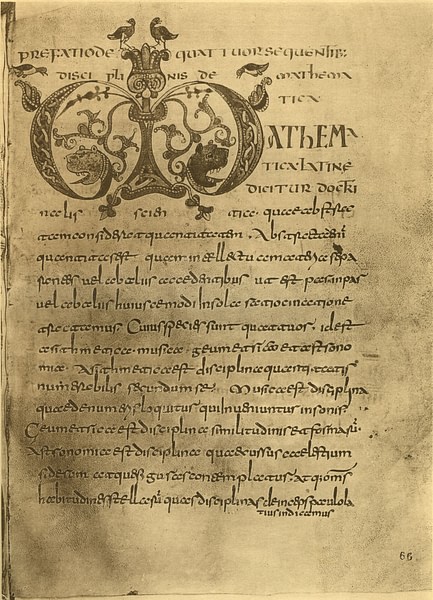 PREFATIO DE QUATTUOR SEQUENTIB:
DISCIPLINIS DE MATHEMA
TICA
MATHEMA
TICA LATINE
DICITUR DOCTRI
nalis scientia. quae abstrac
tam considerat quantitatem. Abstracta enim
quantitas est, quam intellectu a materia sepa
rantes vel ab aliis accidentibus ut est par inpar
vel ab aliis huiuscemodi in sola ratiocinatione
tractamus. Cuius species sunt quattuor. id est
arithmetica. musica. geumetrica et astrono
mica. Arithmetica est disciplina quantitatis
numerabilis secundum se. Musica est disciplina
quae de numeris loquitur qui inveniuntur in sonis.
Geumetrica est disciplina similitudinis et formarum.
Astronomica est disciplina quae cursus caelestium
siderum atque figuras contemplatur. atq omnis
habitudines stellarum quas disciplinas deinceps paululo la
tius indicamus
66